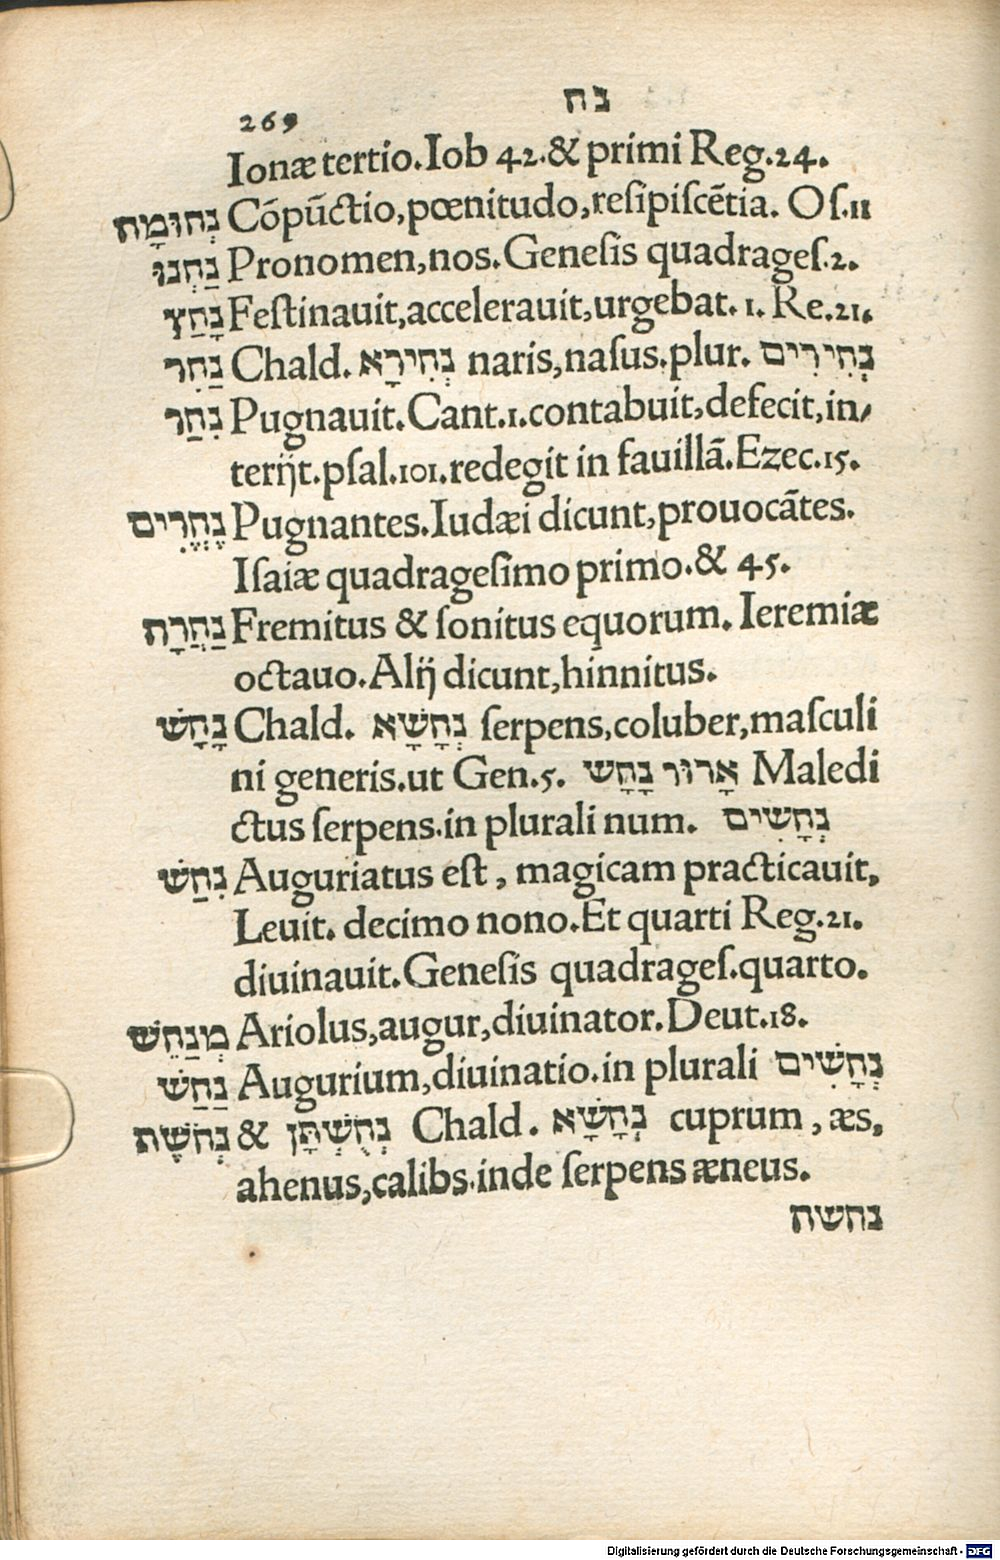 נח
269
Ionæ tertio. Iob 42. & primi Reg. 24.
נְחוּמָה Cōpūctio, pœnitudo, resipiscētia. Os. 11
נַחְנוּ Pronomen, nos. Genesis quadrages. 2.
נָחַץ Festinauit, accelerauit, urgebat. 1. Re. 21.
נַחִר Chald. נְחִירָא naris, nasus. plur. נְחִירִים
נִחַר Pugnauit. Cant. 1. contabuit, defecit, in⸗
terijt. psal. 101. redegit in fauillā. Ezec. 15.
נֶחֱרִים Pugnantes. Iudæi dicunt, prouocātes.
Isaiæ quadragesimo primo. & 45.
נַחֲרָה Fremitus & sonitus equorum. Ieremiæ
octauo. Alij dicunt, hinnitus.
נָחָשׁ Chald. נְחָשָׁא serpens, coluber, masculi
ni generis. ut Gen. 5. אָרוּר נָחָש Maledi
ctus serpens. in plurali num. נְחָשִים
נִחַשׁ Auguriatus est, magicam practicauit,
Leuit. decimo nono. Et quarti Reg. 21.
diuinauit. Genesis quadrages. quarto.
מְנַחֵשׁ Ariolus, augur, diuinator. Deut. 18.
נַחַשׁ Augurium, diuinatio. in plurali נְחָשִׁים
נְחֹשֶׁת & נְחֻשְׁתָּן Chald. נְחָשָׁא cuprum, æs,
ahenus, calibs. inde serpens æneus.
נחשת
Digitalisierung gefördert durch die Deutsche Forschungsgemeinschaft - DFG